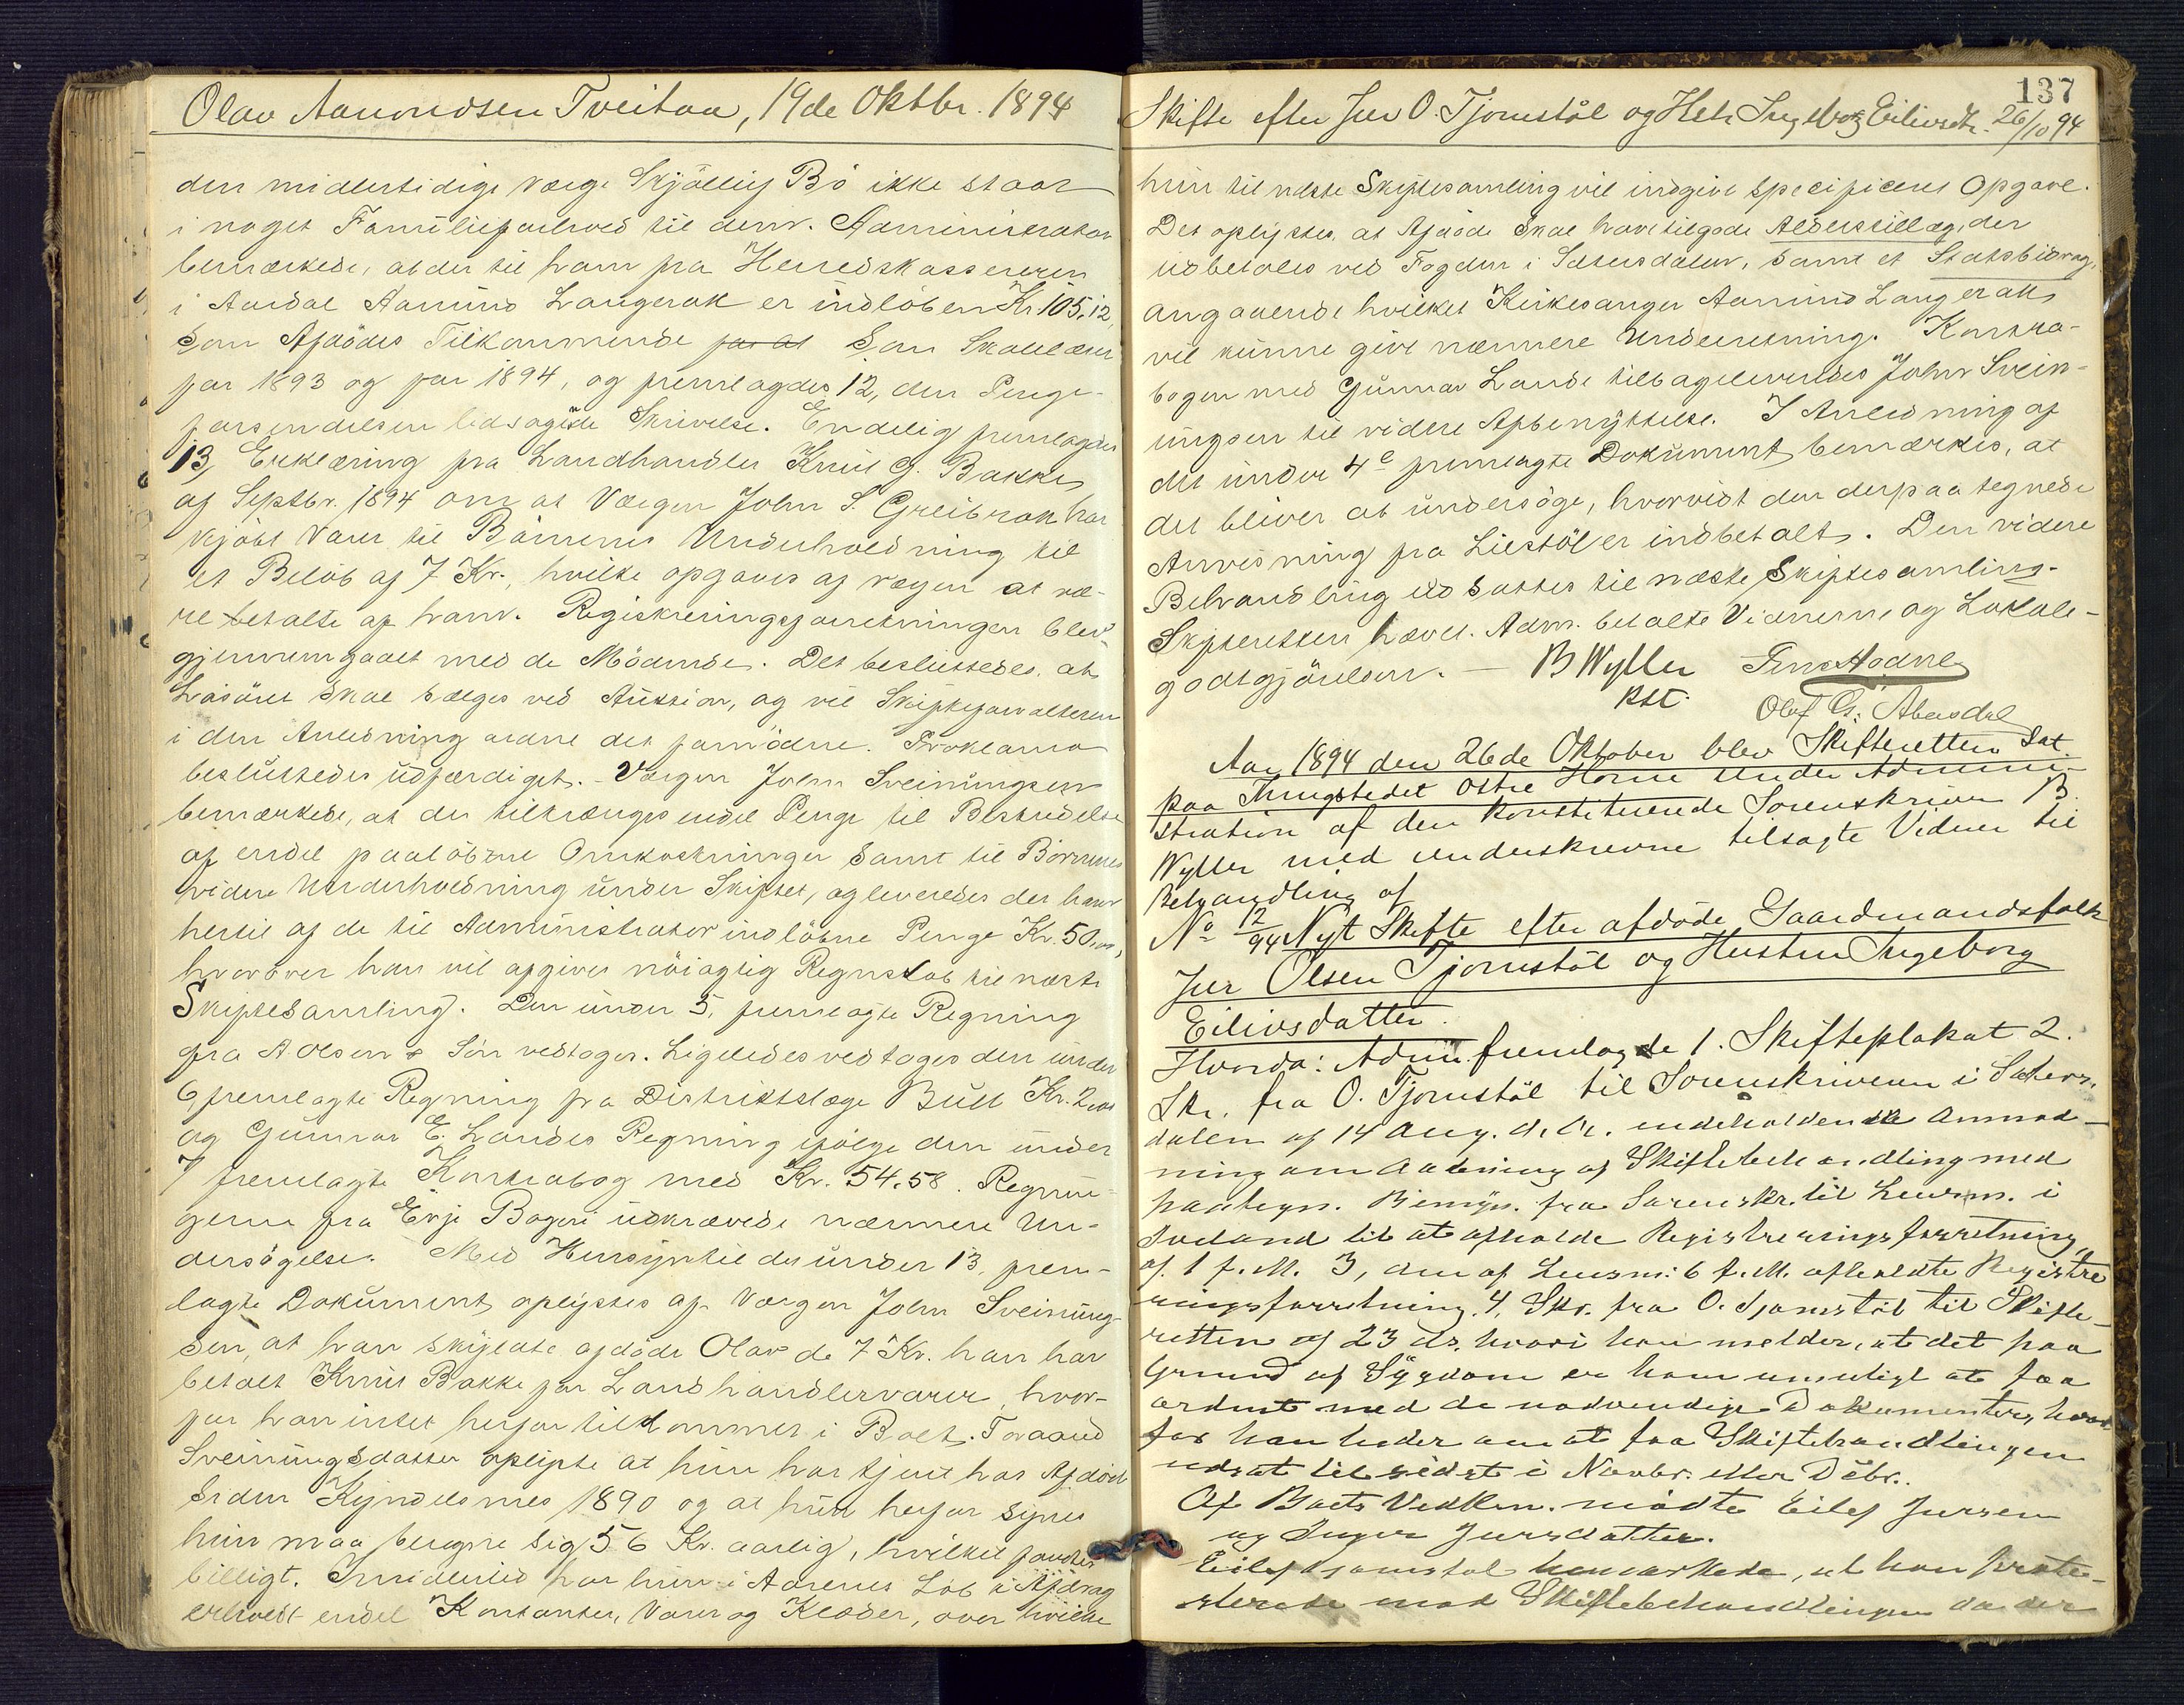 Olav Aamundsen Tveitaa, 19de Oktbr. 1894
den midlertidige Værge Skjöllig Bö ikke staar
i noget Familieforhold til dem. Administrator
bemærkede, at der til ham fra Herredskassereren
i Aardal Aamund Langerak er indlöben Kr. 105,12,
som Afdödes Tilkommende for at som Skolelærer
for 1893 og for 1894, og fremlagdes 12, den Penge-
forsendelsen ledsagede Skrivelse. Endelig fremlagdes
13, Erklæring fra Landhandler Knut G. Bakke
af Septbr. 1894 om at Værgen John S. Greibrok har
kjöbt Varer til Börnenes Underholdning til
et Belöb af 7 Kr., hvilke opgaves af Værgen at væ-
re betalte af ham. Registreringsforretningen blev
gjennemgaaet med de Mödende. Det besluttedes, at
Lösöret skal sælges ved Auktion, og vil Skifteforvalteren
i den Anledning ordne det fornödne. Proklama
besluttedes udfærdiget. Værgen John Sveinungsen
bemærkede, at der tiltrænges endel Penge til Bestridelse
af endel paalöbne Omkostninger samt til Börnenes
videre Underholdning under Skiftet, og leveredes der ham
hertil af de til Administrator indlöbne Penge Kr. 50,00,
hvorover han vil afgive nöiagtig Regnskab til næste
Skiftesamling. Den under 5, fremlagte Regning
fra A Olsen & Sön vedtoges. Ligeledes vedtoges den under
6, fremlagte Regning fra Distriktslæge Bull Kr. 2,00
og Gunnar E. Landes Regning ifölge den under
7 fremlagte Kontrabog med Kr. 54,58. Regnin-
gerne fra Evje Bageri udkrævede nærmere Un-
dersögelse. Med Hensyn til det under 13, frem-
lagte Dokument oplystes af Værgen John Sveinung-
sen, at han skyldte afdöde Olav de 7 Kr. han har
betalt Knut Bakke for Landhandlervarer, hvor-
for han intet herfor tilkommer i Boet. Toraand
Sveinungsdatter oplyste at hun har tjent hos Afdöde
siden Kyndelsmes 1890 og at hun herfor synes
hun maa beregne sig 56 Kr. aarlig, hvilket fandtes
billigt. Imidlertid har hun i Aarenes Löb i Afdrag
erholdt endel Kontanter, Varer og Klæder, over hvilke
137
Skifte efter Jur O. Tjomstöl og Hstr. Ingeborg Eilivsdtr. 26/10 94
hun til næste Skiftesamling vil indgive specificeret Opgave.
Det oplystes, at Afdöde skal have tilgode Alderstillæg, der
udbetales ved Fogden i Sætersdalen, samt et Statsbidrag,
angaaende hvilket Kirkesanger Aamund Langerak
vil kunne give nærmere Underretning. Kontra-
bogen med Gunnar Lande tilbageleveredes John Svein-
ungsen til videre Afbenyttelse. I Anledning af
det under 4e fremlagte Dokument bemærkes, at
det bliver at undersöge, hvorvidt den derpaa tegnede
Anvisning fra Liestöl er indbetalt. Den videre
Behandling udsattes til næste Skiftesamling.
Skifteretten hævet. Adm. betalte Vidnerne og Lokale-
godtgjörelsen. — B Wyller
kst.
Olaf G. Abusdal
Aar 1894 den 26de Oktober blev Skifteretten sat
paa Thingstedet Östre Horne under Admini-
stration af den konstituerede Sorenskriver B.
Wyller med underskrevne tilsagte Vidner til
Behandling af
No 12/94 Nyt Skifte efter afdöde Gaardmandsfolk
Jur Olsen Tjomstöl og Hustru Ingeborg
Eilivsdatter.
Hvorda: Adm. fremlagde 1. Skifteplakat 2.
Skr. fra O. Tjomstöl til Sorenskriveren i Sæters-
dalen af 14 Aug. d. A. indeholdende Anmod-
ning om Aabning af Skiftebehandling med
paategn. Bemyn. fra Sorenskr. til Lensm. i
Iveland til at afholde Registreringsforretning
af 1 f. M. 3, den af Lensm. 6 f. M. afholdte Registre
ringsforretning. 4, Skr. fra O. Tjomstöl til Skifte-
retten af 23 ds. hvori han melder, at det paa
Grund af Sygdom er ham umuligt at faa
ordnet med de nödvendige Dokumenter, hvor
for han beder om at faa Skiftebehandlingen
udsat til sidst i Novbr. eller Debr.
Af Boets Vedkm. mödte Eilef Jursen
og Inger Jursdatter.
Eilef Tjomstöl bemærkede, at han prote-
sterede mod Skiftebehandlingen da der